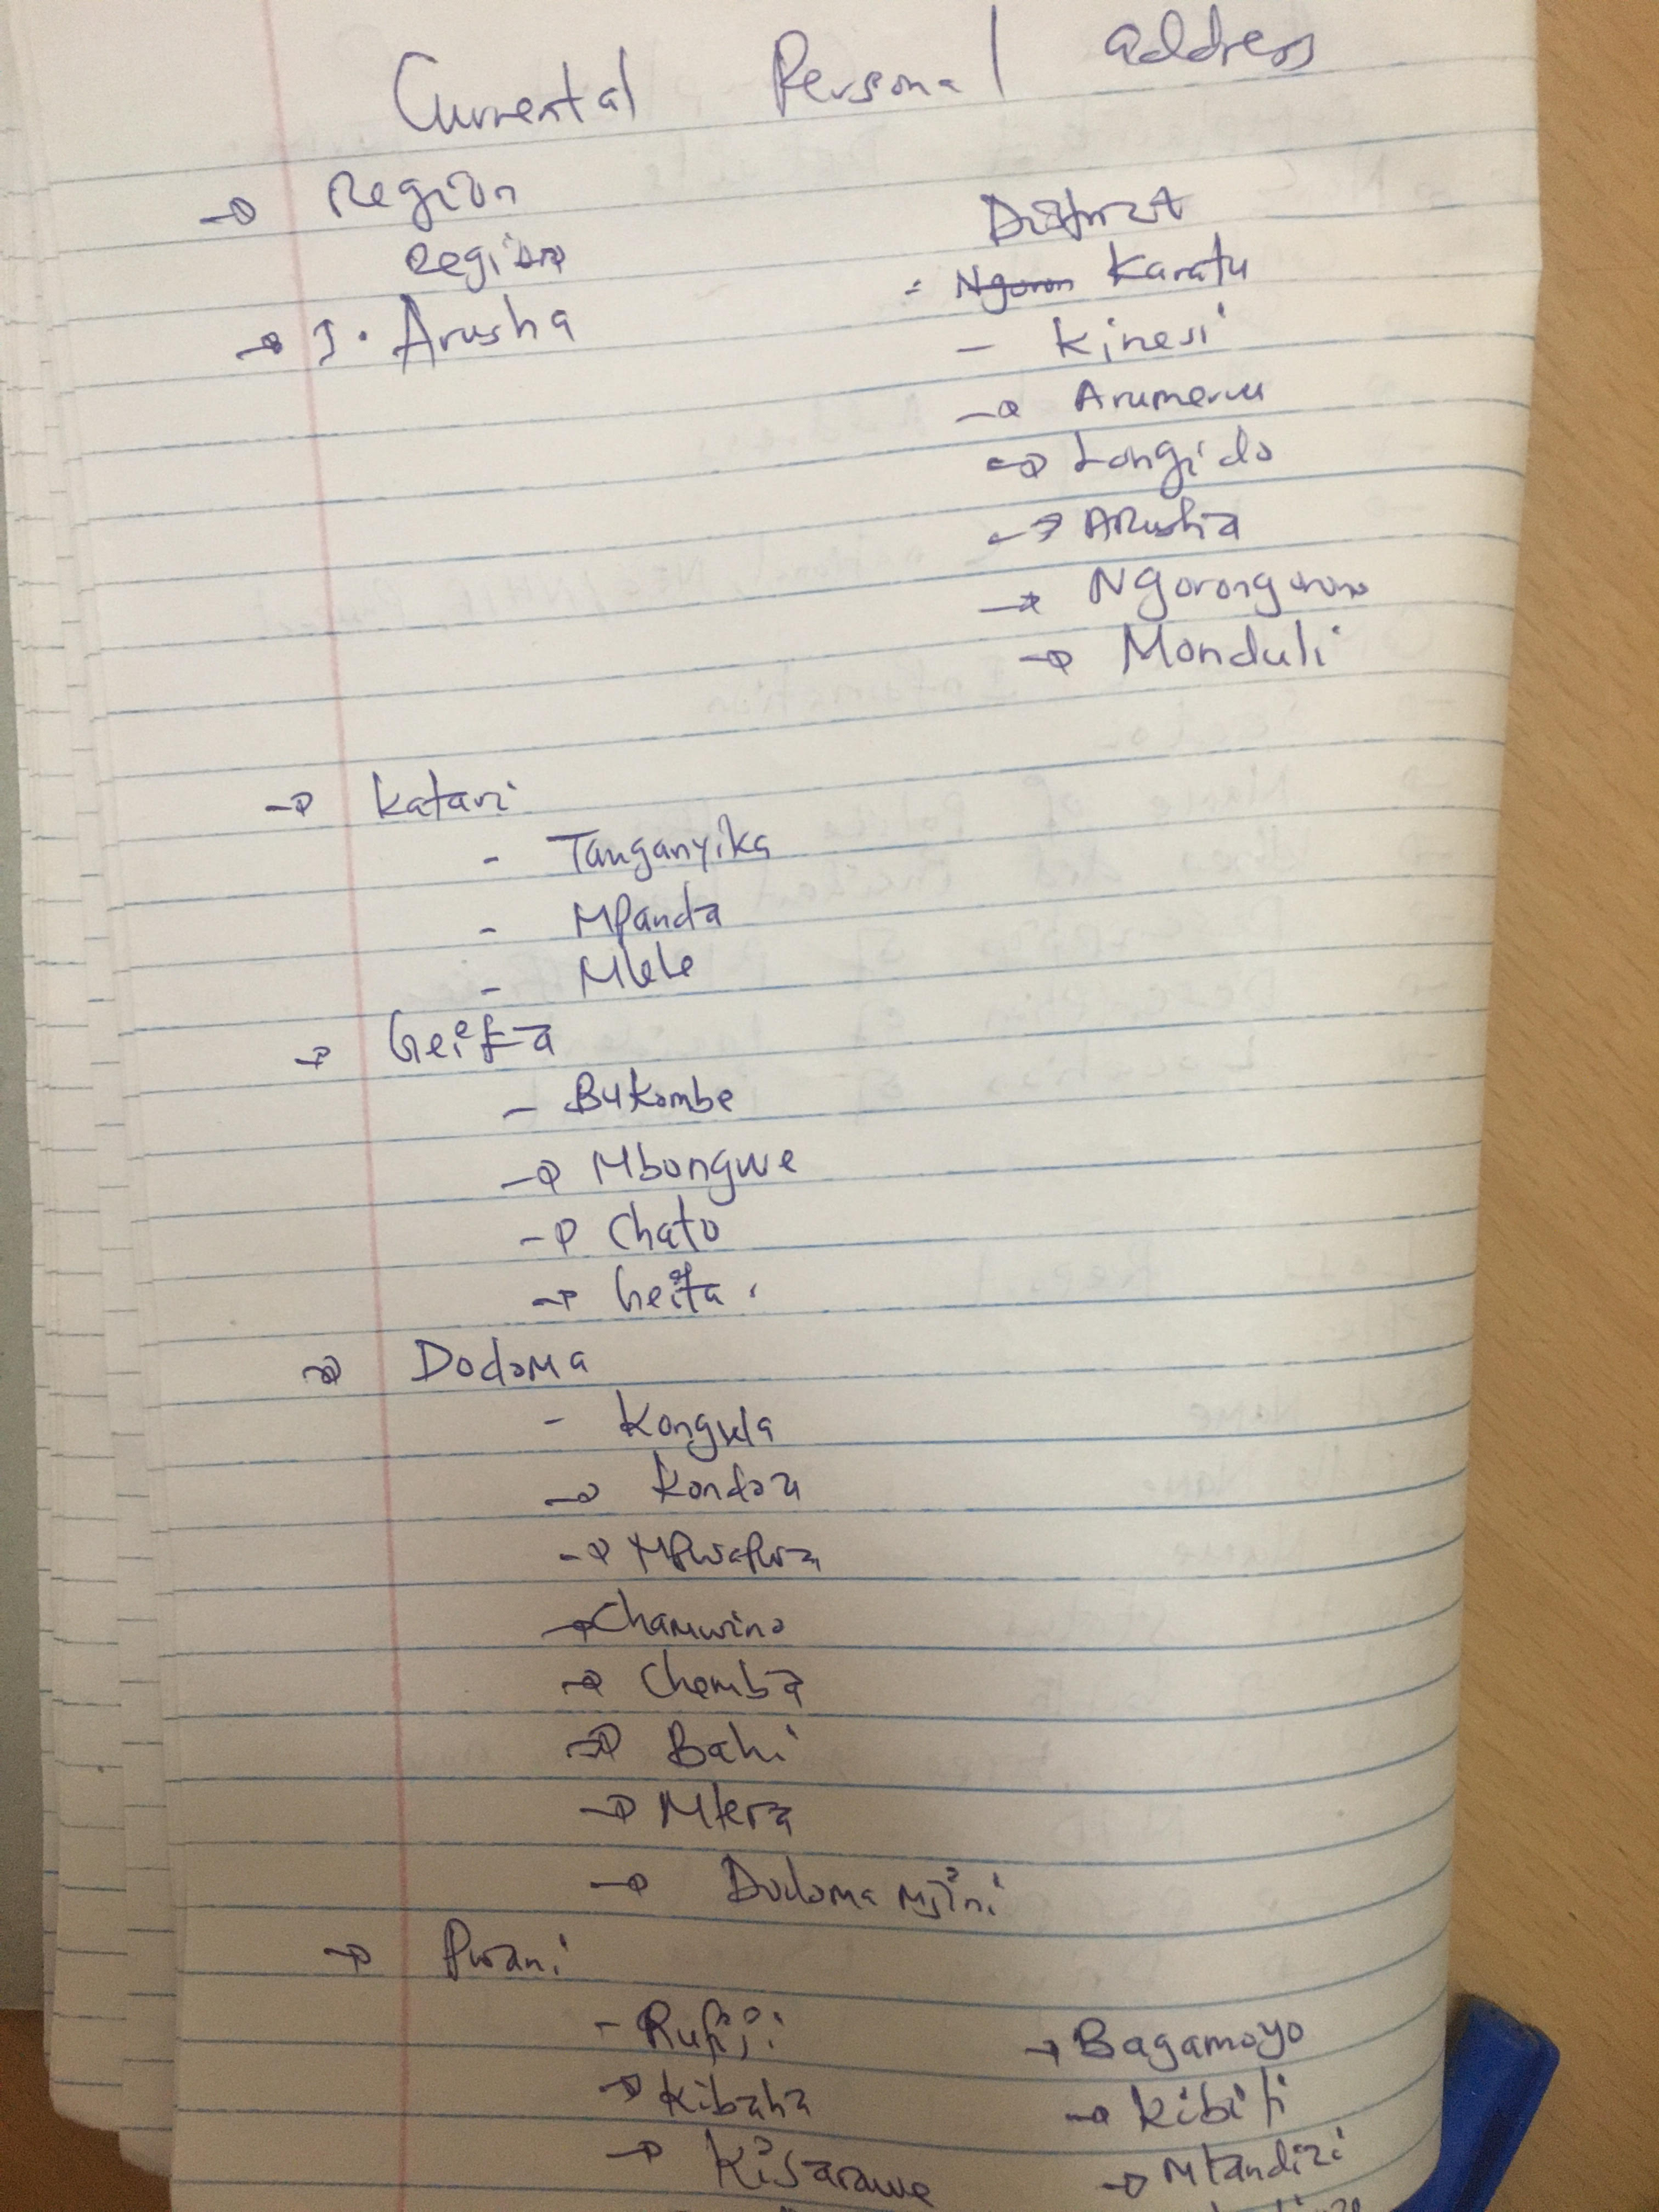 Currental Personal address
→ Region
Region District
→ 1. Arusha = Ngoron Karatu
- Kinesi
→ Arumeru
→ Longido
→ ARusha
→ Ngorongoro
→ Monduli
→ Katavi
- Tanganyika
- MPanda
- Mlele
→ Geita
- BuKombe
→ Mbongwe
→ Chato
→ Geita
→ Dodoma
- Kongwa
→ Kondoa
→ MPwaPwa
→ Chamwino
→ Chemba
→ Bahi
→ Mtera
→ Dodoma Mjini
→ Pwani
- Rufiji → Bagamoyo
→ Kibaha → Kibiti
→ Kisarawe → Mtandizi